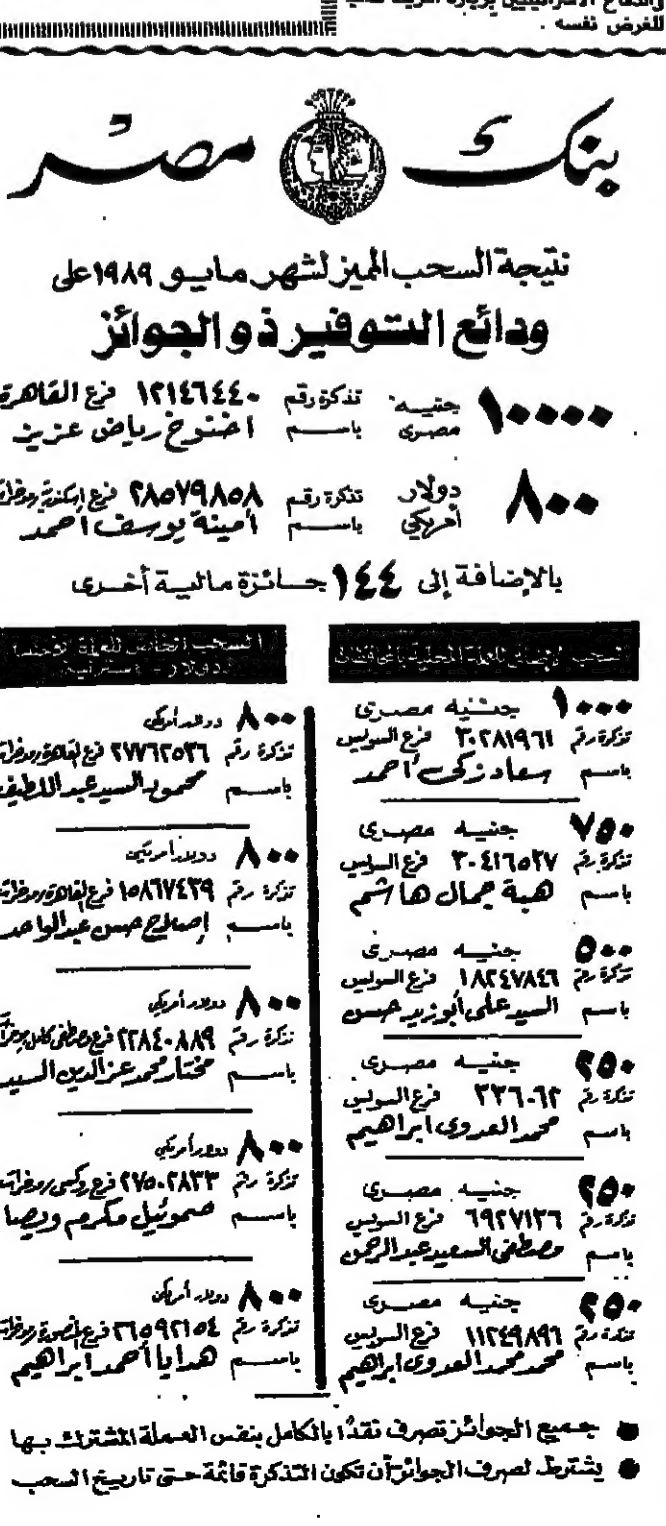 للغرض نفسه .
بنك مصر
نتيجة السحب المميز لشهر مايو ١٩٨٩ على
ودائع التوفير ذو الجوائز
١٠٠٠٠ جنيه مصرى تذكرة رقم ١٢١٤٦٤٤٠ فرع القاهرة
باسم اخنوخ رياض عزيز
٨٠٠ دولار أمريكي تذكرة رقم ٢٨٥٧٩٨٥٨ فرع اسكندرية ومدخراته
باسم أمينة يوسف احمد
بالإضافة إلى ١٤٤ جائزة مالية أخرى
١٠٠٠ جنيه مصرى
تذكرة رقم ٣٠٢٨١٩٦١ فرع السويس
باسم سعاد زكى احمد
٧٥٠ جنيه مصرى
تذكرة رقم ٣٠٤١٦٥٢٧ فرع السويس
باسم هبة جمال هاشم
٥٠٠ جنيه مصرى
تذكرة رقم ١٨٢٤٧٨٤٦ فرع السويس
باسم السيد على أبوزيد حسن
٢٥٠ جنيه مصرى
تذكرة رقم ٣٣٦٠٦٢ فرع السويس
باسم محمد العدوى ابراهيم
٢٥٠ جنيه مصرى
تذكرة رقم ٦٩٢٧١٣٦ فرع السويس
باسم مصطفى السعيد عبد الرحمن
٢٥٠ جنيه مصرى
تذكرة رقم ١١٢٤٩٨٩٦ فرع السويس
باسم محمد محمد العدوى ابراهيم
السحب الخاص للعملة
٨٠٠ دولار أمريكى
تذكرة رقم ٢٧٧٦٢٥٣٦ فرع القاهرة
باسم محمود السيد عبد اللطيف
٨٠٠ دولار أمريكى
تذكرة رقم ١٥٨٦٧٤٣٩ فرع القاهرة
باسم إصلاح حسن عبد الواحد
٨٠٠ دولار أمريكى
تذكرة رقم ٢٢٨٤٠٨٨٩ فرع مصطفى كامل
باسم مختار محمد عز الدين السيد
٨٠٠ دولار أمريكى
تذكرة رقم ٢٧٥٠٢٨٣٣ فرع روكسى
باسم صموئيل مكرم ويصا
٨٠٠ دولار أمريكى
تذكرة رقم ٢٦٥٩٢١٥٤ فرع المنصورة
باسم هدايا أحمد ابراهيم
جميع الجوائز تصرف نقدًا بالكامل بنفس العملة المشترك بها
يشترط لصرف الجوائز أن تكون التذكرة قائمة حتى تاريخ السحب